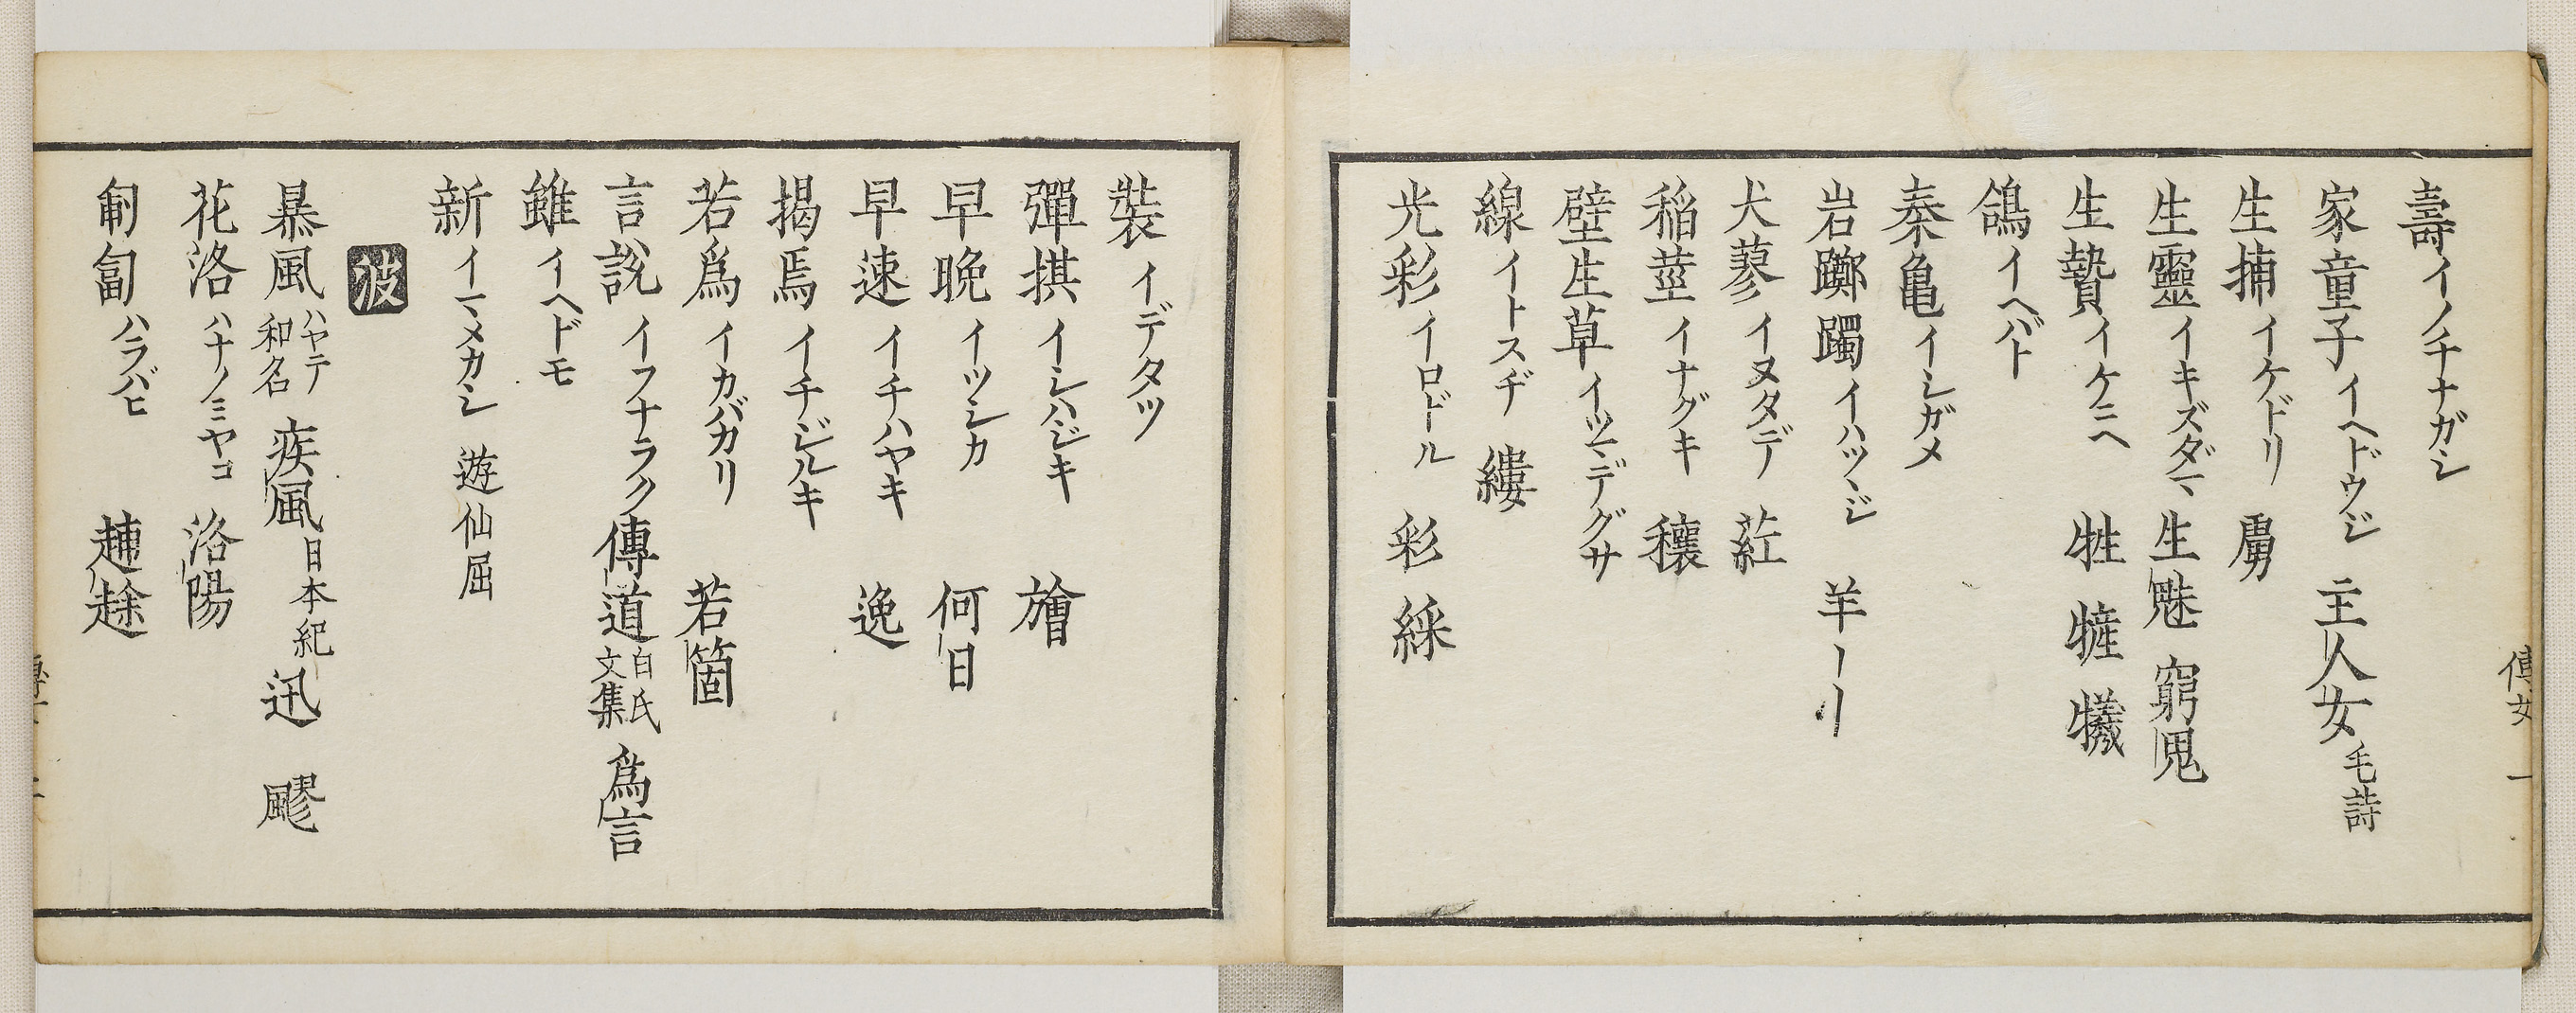 壽イノチナガシ
家童子イヘドウジ 主人女毛詩
生捕イケドリ 虜
生靈イキズダマ 生魑 窮鬼
生贄イケニヘ 牲 犠
鴿イヘバト
秦亀イシガメ
岩躑躅イハツヽジ 羊〡〢
犬蓼イヌタデ 葒
稲茎イナグキ 穰
壁生草イツマデグサ
線イトスヂ 縷
光彩イロドル 彩 綵
裝イデタツ
彈棋イシハジキ 旝
早晩イツシカ 何日
早速イチハヤキ 逸
揭焉イチジルキ
若為イカバカリ 若箇
言說イフナラク 傳道白氏文集 為言
雖イヘドモ
新イマメカシ 遊仙屈
波
暴風ハヤテ和名 疾風日本紀 迅 飂
花洛ハナノミヤコ 洛陽
匍匐ハラバヒ